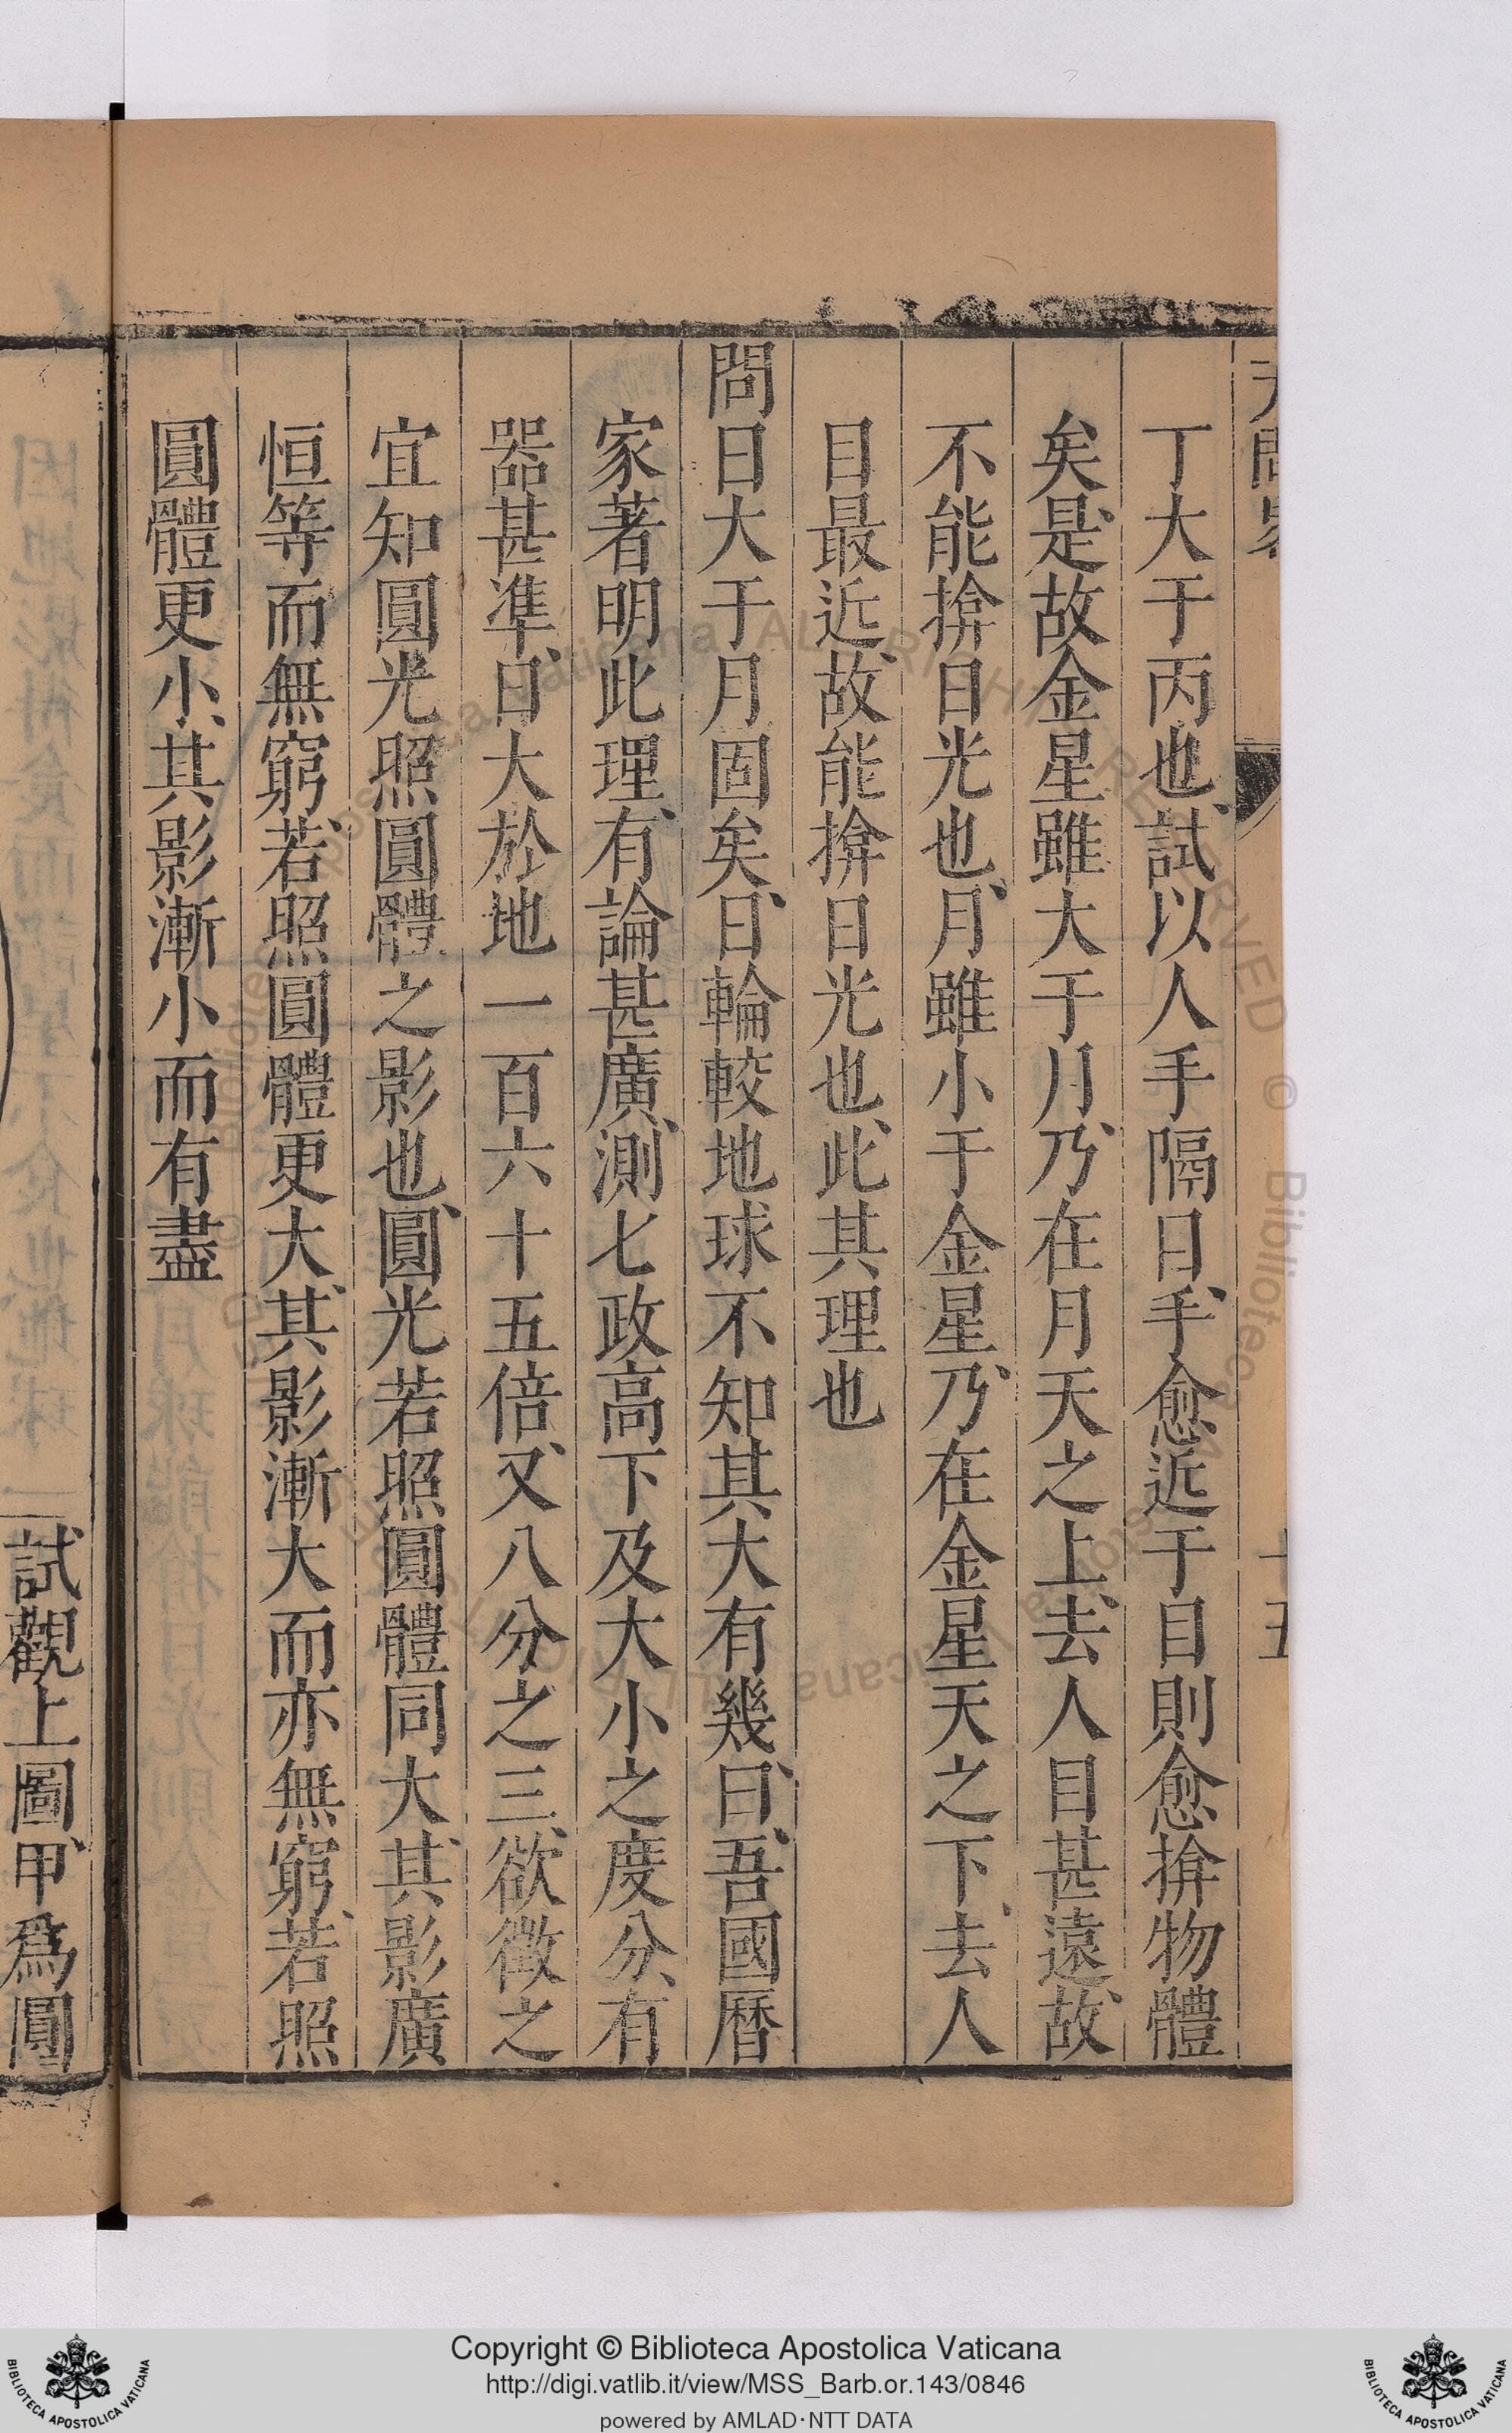 丁大于丙也、試以人手隔日、手愈近于目則愈揜物體
矣、是故金星雖大于月、乃在月天之上、去人目甚遠、故
不能揜日光也、月雖小于金星、乃在金星天之下、去人
目最近、故能揜日光也、此其理也
問日大于月固矣、日輪較地球不知其大有幾、曰、吾國曆
家著明此理、有論甚廣、測七政高下及大小之度分、有
器甚準、日大於地一百六十五倍、又八分之三、欲徵之
宜知圓光照圓體之影也、圓光若照圓體同大、其影廣
恒等而無窮、若照圓體更大、其影漸大而亦無窮、若照
圓體更小、其影漸小而有盡
試觀上圖、甲為圓
十五
Copyright © Biblioteca Apostolica Vaticana
http://digi.vatlib.it/view/MSS_Barb.or.143/0846
powered by AMLAD·NTT DATA
BIBLIOTECA APOSTOLICA VATICANA
BIBLIOTECA APOSTOLICA VATICANA